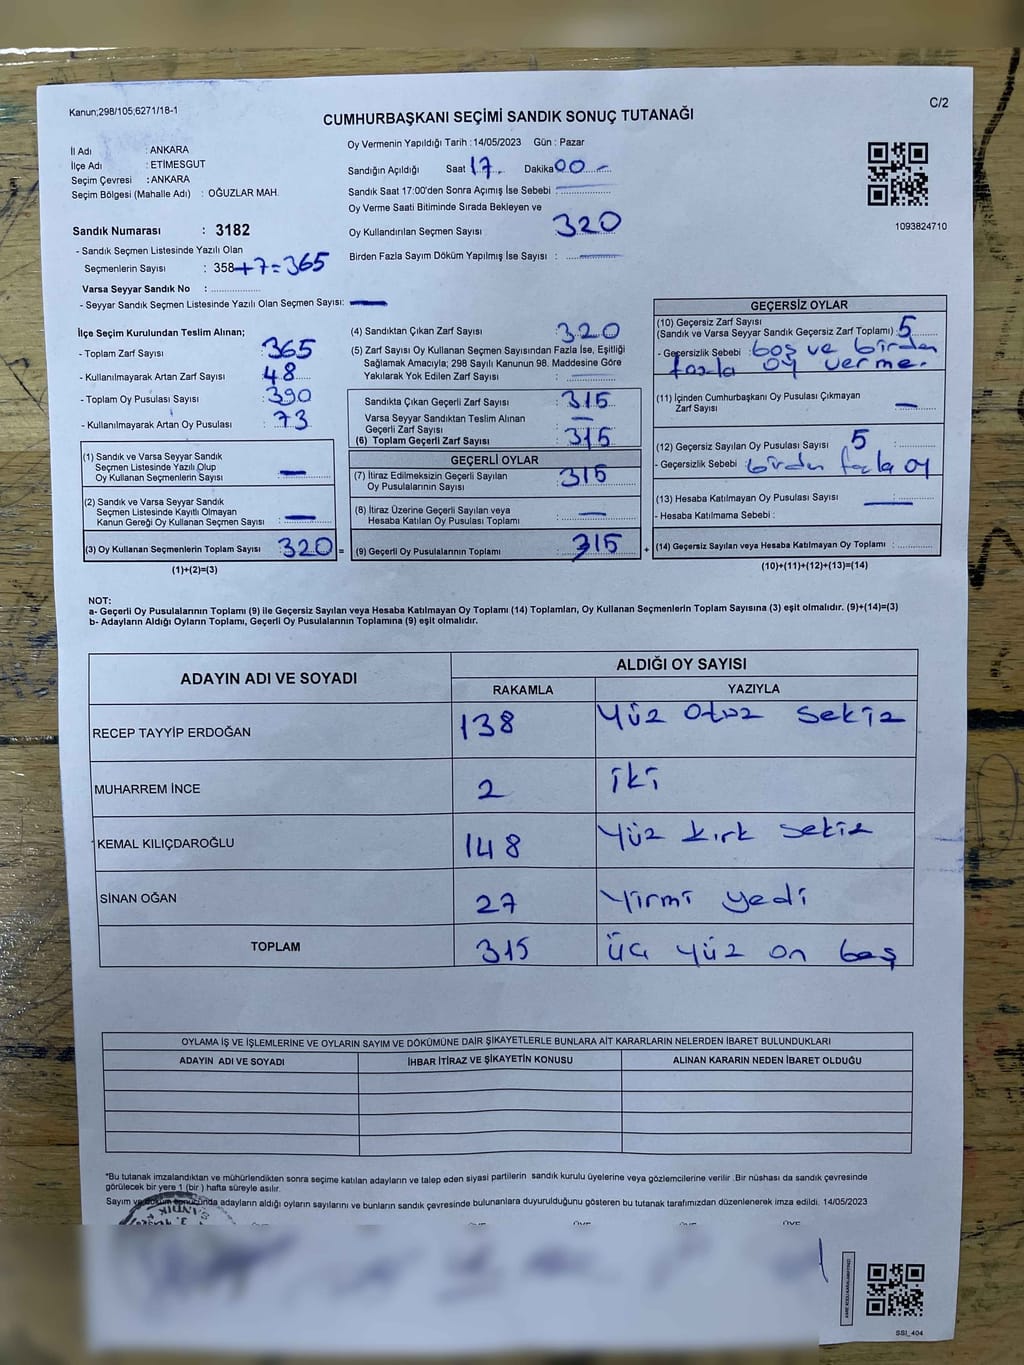 Kanun;298/105;6271/18-1
C/2
CUMHURBAŞKANI SEÇİMİ SANDIK SONUÇ TUTANAĞI
İl Adı : ANKARA
İlçe Adı : ETİMESGUT
Seçim Çevresi : ANKARA
Seçim Bölgesi (Mahalle Adı) : OĞUZLAR MAH.
Oy Vermenin Yapıldığı Tarih : 14/05/2023 Gün : Pazar
Sandığın Açıldığı Saat 17 Dakika 00
Sandık Saat 17:00'den Sonra Açmış İse Sebebi :
Oy Verme Saati Bitiminde Sırada Bekleyen ve
Oy Kullandırılan Seçmen Sayısı 320
Birden Fazla Sayım Döküm Yapılmış İse Sayısı :
1093824710
Sandık Numarası : 3182
- Sandık Seçmen Listesinde Yazılı Olan
Seçmenlerin Sayısı : 358+7=365
Varsa Seyyar Sandık No :
- Seyyar Sandık Seçmen Listesinde Yazılı Olan Seçmen Sayısı:
İlçe Seçim Kurulundan Teslim Alınan;
- Toplam Zarf Sayısı : 365
- Kullanılmayarak Artan Zarf Sayısı : 48
- Toplam Oy Pusulası Sayısı : 390
- Kullanılmayarak Artan Oy Pusulası : 73
(1) Sandık ve Varsa Seyyar Sandık
Seçmen Listesinde Yazılı Olup
Oy Kullanan Seçmenlerin Sayısı :
(2) Sandık ve Varsa Seyyar Sandık
Seçmen Listesinde Kayıtlı Olmayan
Kanun Gereği Oy Kullanan Seçmen Sayısı :
(3) Oy Kullanan Seçmenlerin Toplam Sayısı : 320 =
(1)+(2)=(3)
(4) Sandıktan Çıkan Zarf Sayısı : 320
(5) Zarf Sayısı Oy Kullanan Seçmen Sayısından Fazla İse, Eşitliği
Sağlamak Amacıyla; 298 Sayılı Kanunun 98. Maddesine Göre
Yakılarak Yok Edilen Zarf Sayısı :
Sandıkta Çıkan Geçerli Zarf Sayısı : 315
Varsa Seyyar Sandıktan Teslim Alınan
Geçerli Zarf Sayısı :
(6) Toplam Geçerli Zarf Sayısı : 315
GEÇERLİ OYLAR
(7) İtiraz Edilmeksizin Geçerli Sayılan
Oy Pusulalarının Sayısı : 315
(8) İtiraz Üzerine Geçerli Sayılan veya
Hesaba Katılan Oy Pusulası Toplamı :
(9) Geçerli Oy Pusulalarının Toplamı : 315 +
GEÇERSİZ OYLAR
(10) Geçersiz Zarf Sayısı
(Sandık ve Varsa Seyyar Sandık Geçersiz Zarf Toplamı) 5
- Geçersizlik Sebebi : boş ve birden
fazla oy verme.
(11) İçinden Cumhurbaşkanı Oy Pusulası Çıkmayan
Zarf Sayısı
(12) Geçersiz Sayılan Oy Pusulası Sayısı 5
- Geçersizlik Sebebi birden fazla oy
(13) Hesaba Katılmayan Oy Pusulası Sayısı :
- Hesaba Katılmama Sebebi :
(14) Geçersiz Sayılan veya Hesaba Katılmayan Oy Toplamı :
(10)+(11)+(12)+(13)=(14)
NOT:
a- Geçerli Oy Pusulalarının Toplamı (9) ile Geçersiz Sayılan veya Hesaba Katılmayan Oy Toplamı (14) Toplamları, Oy Kullanan Seçmenlerin Toplam Sayısına (3) eşit olmalıdır. (9)+(14)=(3)
b- Adayların Aldığı Oyların Toplamı, Geçerli Oy Pusulalarının Toplamına (9) eşit olmalıdır.
ADAYIN ADI VE SOYADI ALDIĞI OY SAYISI
RAKAMLA YAZIYLA
RECEP TAYYİP ERDOĞAN 138 Yüz Otuz Sekiz
MUHARREM İNCE 2 İki
KEMAL KILIÇDAROĞLU 148 Yüz kırk sekiz
SİNAN OĞAN 27 Yirmi yedi
TOPLAM 315 Üç yüz on beş
OYLAMA İŞ VE İŞLEMLERİNE VE OYLARIN SAYIM VE DÖKÜMÜNE DAİR ŞİKAYETLERLE BUNLARA AİT KARARLARIN NELERDEN İBARET BULUNDUKLARI
ADAYIN ADI VE SOYADI İHBAR İTİRAZ VE ŞİKAYETİN KONUSU ALINAN KARARIN NEDEN İBARET OLDUĞU
*Bu tutanak imzalandıktan ve mühürlendikten sonra seçime katılan adayların ve talep eden siyasi partilerin sandık kurulu üyelerine veya gözlemcilerine verilir .Bir nüshası da sandık çevresinde
görülecek bir yere 1 (bir ) hafta süreyle asılır.
Sayım ve döküm sonucunda adayların aldığı oyların sayılarını ve bunların sandık çevresinde bulunanlara duyurulduğunu gösteren bu tutanak tarafımızdan düzenlenerek imza edildi. 14/05/2023
SSI_404